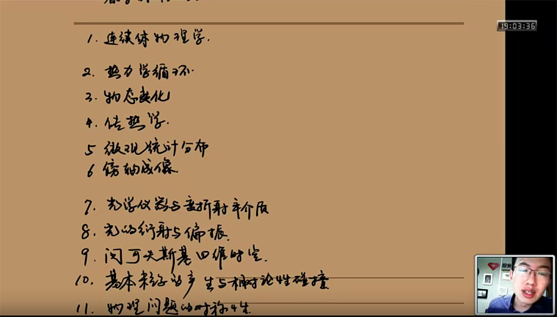 19:03:36
1. 连续体物理学.
2. 热力学循环.
3. 物态变化
4. 传热学.
5 微观统计分布
6 傍轴成像.
7. 光学仪器与变折射率介质
8. 光的衍射与偏振.
9. 闵可夫斯基四维时空.
10. 基本粒子的产生与相对论性碰撞
11. 物理问题的对称性